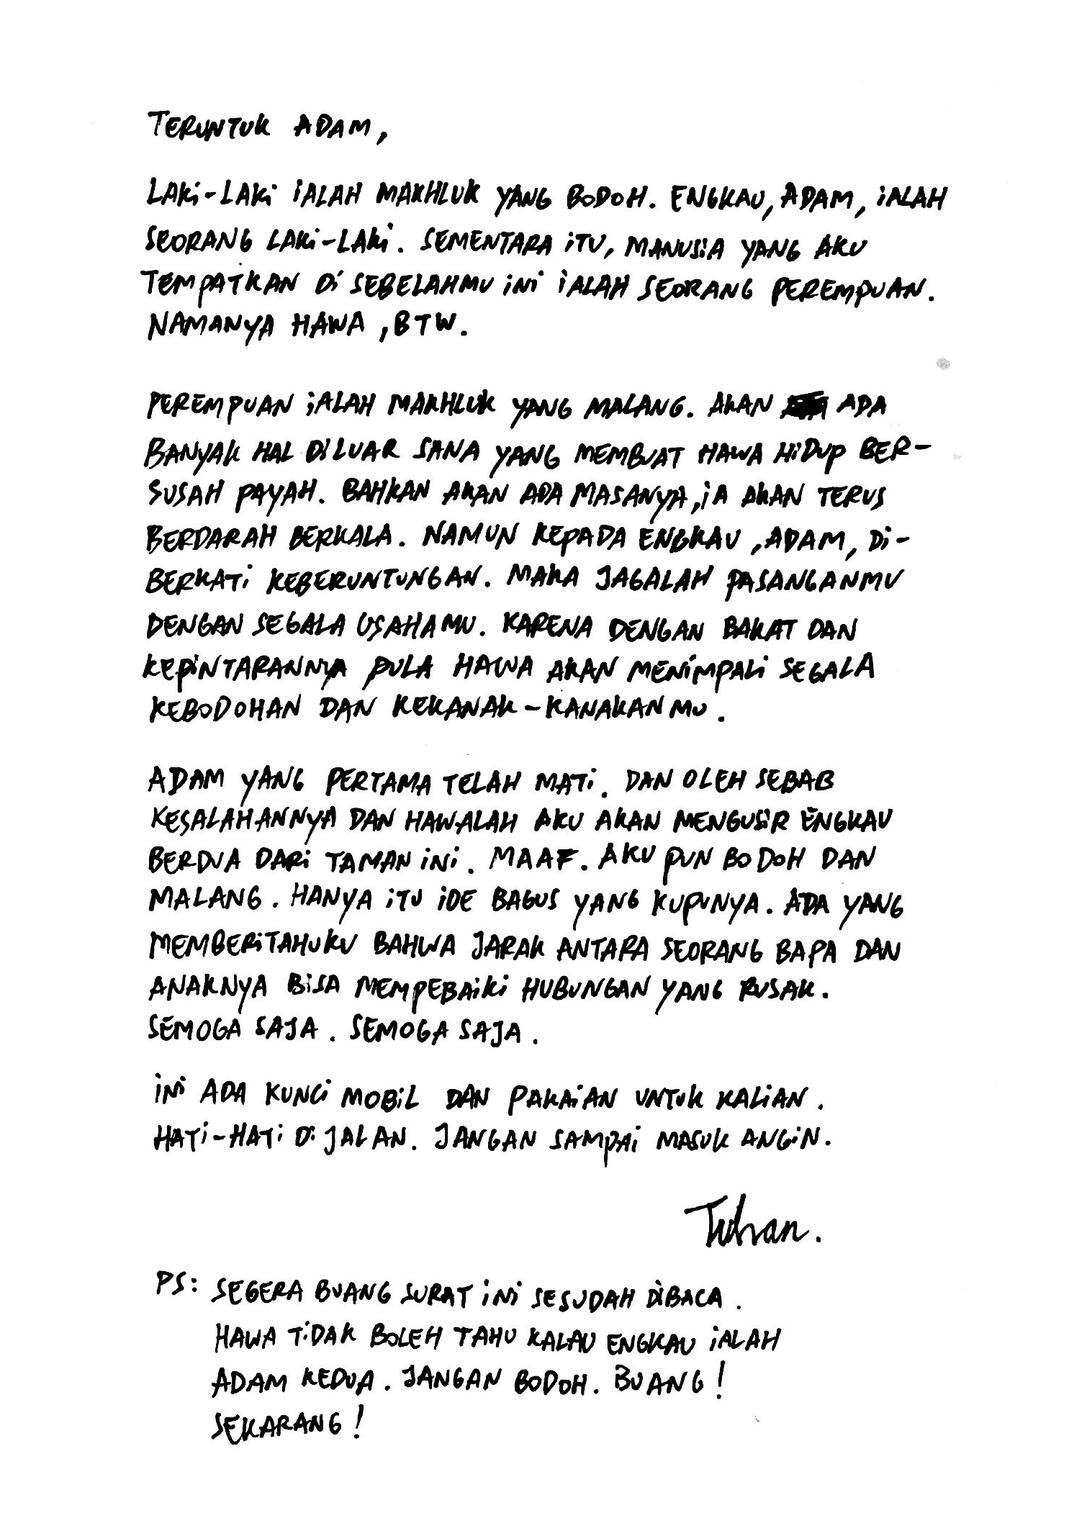 TERUNTUK ADAM,
LAKi-LAKi iALAH MAKHLUK YANG BODOH. ENGKAU, ADAM, iALAH
SEORANG LAKi-LAKi. SEMENTARA iTU, MANUSiA YANG AKU
TEMPATKAN Di SEBELAHMU iNi iALAH SEORANG PEREMPUAN.
NAMANYA HAWA, BTW.
PEREMPUAN iALAH MAKHLUK YANG MALANG. AKAN ADA
BANYAK HAL DiLUAR SANA YANG MEMBUAT HAWA HiDUP BER-
SUSAH PAYAH. BAHKAN AKAN ADA MASANYA, iA AKAN TERUS
BERDARAH BERKALA. NAMUN KEPADA ENGKAU, ADAM, Di-
BERKATi KEBERUNTUNGAN. MAKA JAGALAH PASANGANMU
DENGAN SEGALA USAHAMU. KARENA DENGAN BAKAT DAN
KEPiNTARANNYA PULA HAWA AKAN MENiMPALi SEGALA
KEBODOHAN DAN KEKANAK-KANAKANMU.
ADAM YANG PERTAMA TELAH MATi. DAN OLEH SEBAB
KESALAHANNYA DAN HAWALAH AKU AKAN MENGUSiR ENGKAU
BERDUA DARi TAMAN iNi. MAAF. AKU PUN BODOH DAN
MALANG. HANYA iTU iDE BAGUS YANG KUPUNYA. ADA YANG
MEMBERiTAHUKU BAHWA JARAK ANTARA SEORANG BAPA DAN
ANAKNYA BiSA MEMPEBAiKi HUBUNGAN YANG RUSAK.
SEMOGA SAJA. SEMOGA SAJA.
iNi ADA KUNCi MOBiL DAN PAKAiAN UNTUK KALiAN.
HATi-HATi Di JALAN. JANGAN SAMPAi MASUK ANGiN.
Tuhan.
PS: SEGERA BUANG SURAT iNi SESUDAH DiBACA.
HAWA TiDAK BOLEH TAHU KALAU ENGKAU iALAH
ADAM KEDUA. JANGAN BODOH. BUANG!
SEKARANG!